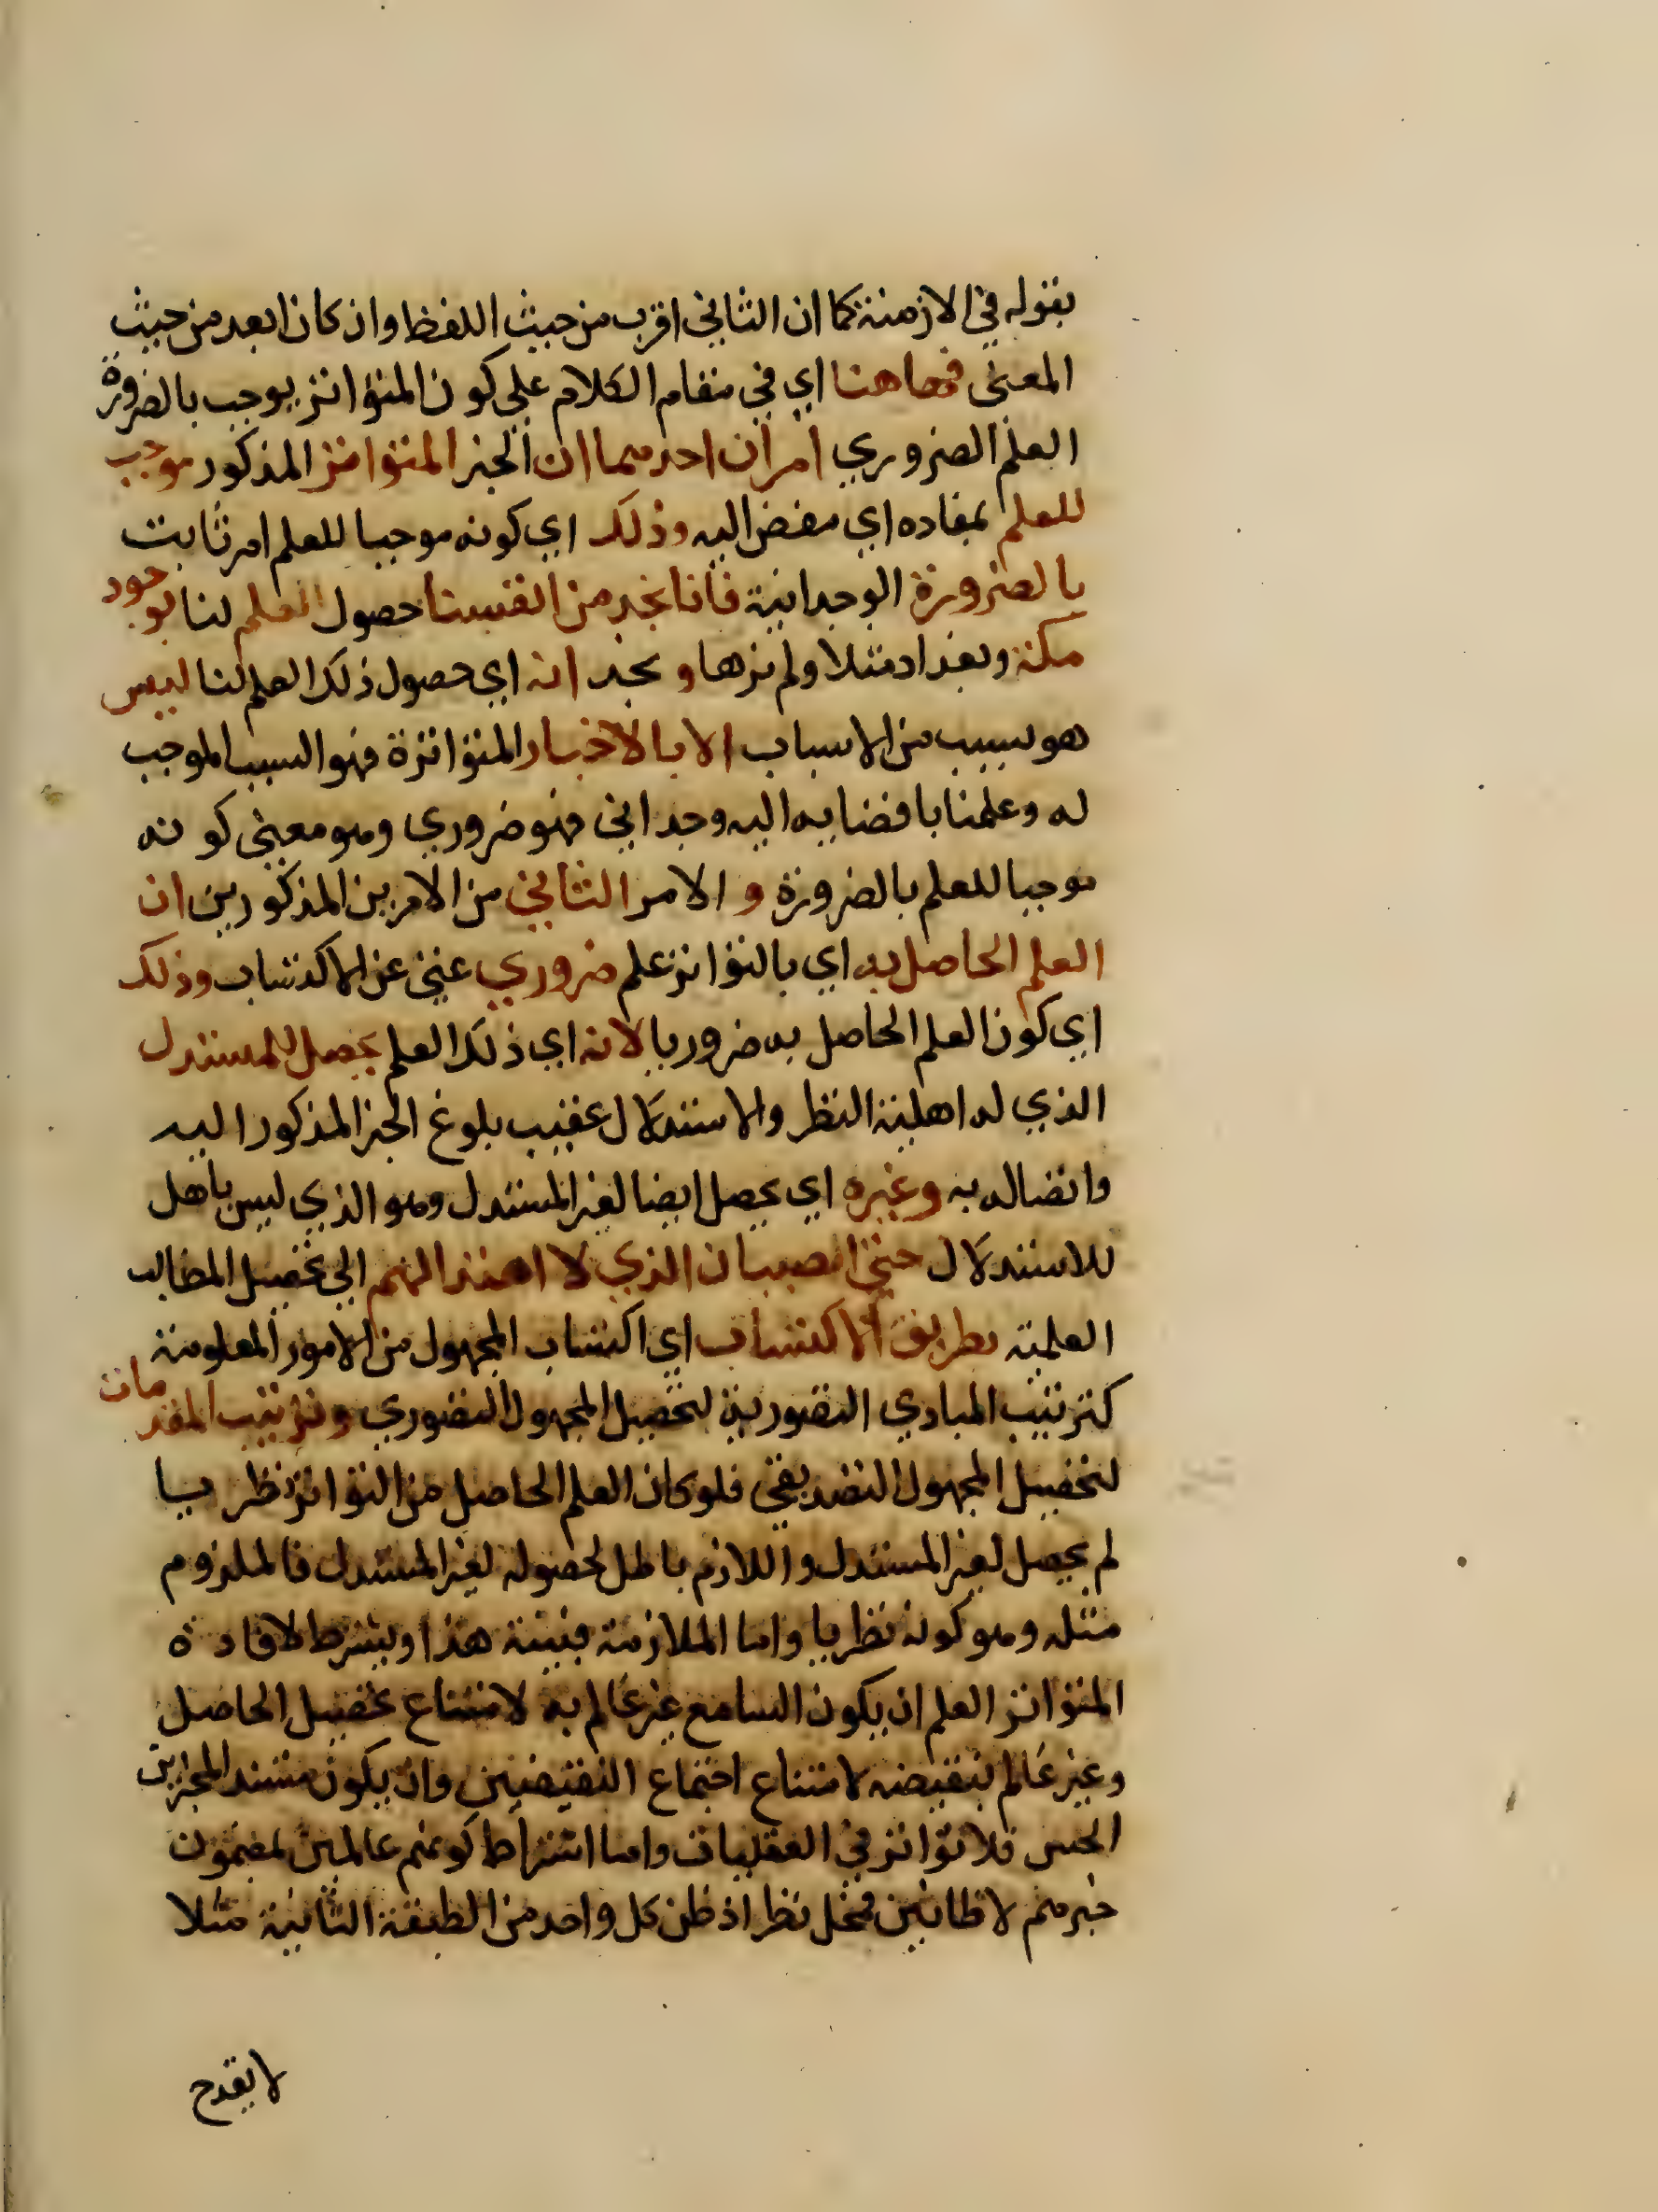 بقوله في الازمنة كما ان الثاني اقرب من حيث اللفظ وان كان ابعد من حيث
المعنى فهاهنا اي في مقام الكلام على كون المتواتر يوجب بالضرورة
العلم الضروري امران احدهما ان الخبر المتواتر المذكور موجب
للعلم بمفاده اي مفض اليه وذلك اي كونه موجبا للعلم امر ثابت
بالضرورة الوجدانية فانا نجد من انفسنا حصول العلم لنا بوجود
مكة وبغداد مثلا ولم نرها و نجد انه اي حصول ذلك العلم لنا ليس
هو بسبب من الاسباب الا بالاخبار المتواترة فهو السبب الموجب
له وعلمنا بافضايه اليه وجداني فهو ضروري وهو معنى كونه
موجبا للعلم بالضرورة و الامر الثاني من الامرين المذكورين ان
العلم الحاصل به اي بالتواتر علم ضروري غني عن الاكتساب وذلك
اي كون العلم الحاصل به ضروريا لانه اي ذلك العلم يحصل للمستدل
الذي له اهلية النظر والاستدلال عقيب بلوغ الخبر المذكور اليه
واتصاله به وغيره اي يحصل ايضا لغير المستدل وهو الذي ليس باهل
للاستدلال حتى الصبيان الذي لا اهتدا لهم الى تحصيل المطالب
العلمية بطريق الاكتساب اي اكتساب المجهول من الامور المعلومة
كترتيب المبادي التصورية لتحصيل المجهول التصوري وترتيب المقدمات
لتحصيل المجهول التصديقي فلو كان العلم الحاصل من التواتر نظريا
لم يحصل لغير المستدل واللازم باطل لحصوله لغير المستدل فالملزوم
مثله وهو كونه نظريا واما الملازمة فبينة هذا ويشترط لافادة
المتواتر العلم ان يكون السامع غير عالم به لامتناع تحصيل الحاصل
وغير عالم بنقيضه لامتناع اجتماع النقيضين وان يكون مستند المخبرين
الحس فلا تواتر في العقليات واما اشتراط كونهم عالمين بمضمون
خبرهم لا ظانين فمحل نظر اذ ظن كل واحد من الطبقة الثانية مثلا
لا يقدح